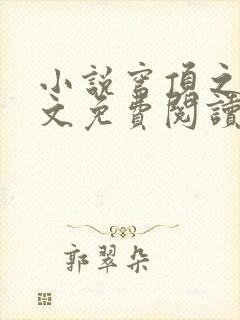 小說穹頂之
文免費閱讀
郭翠朵